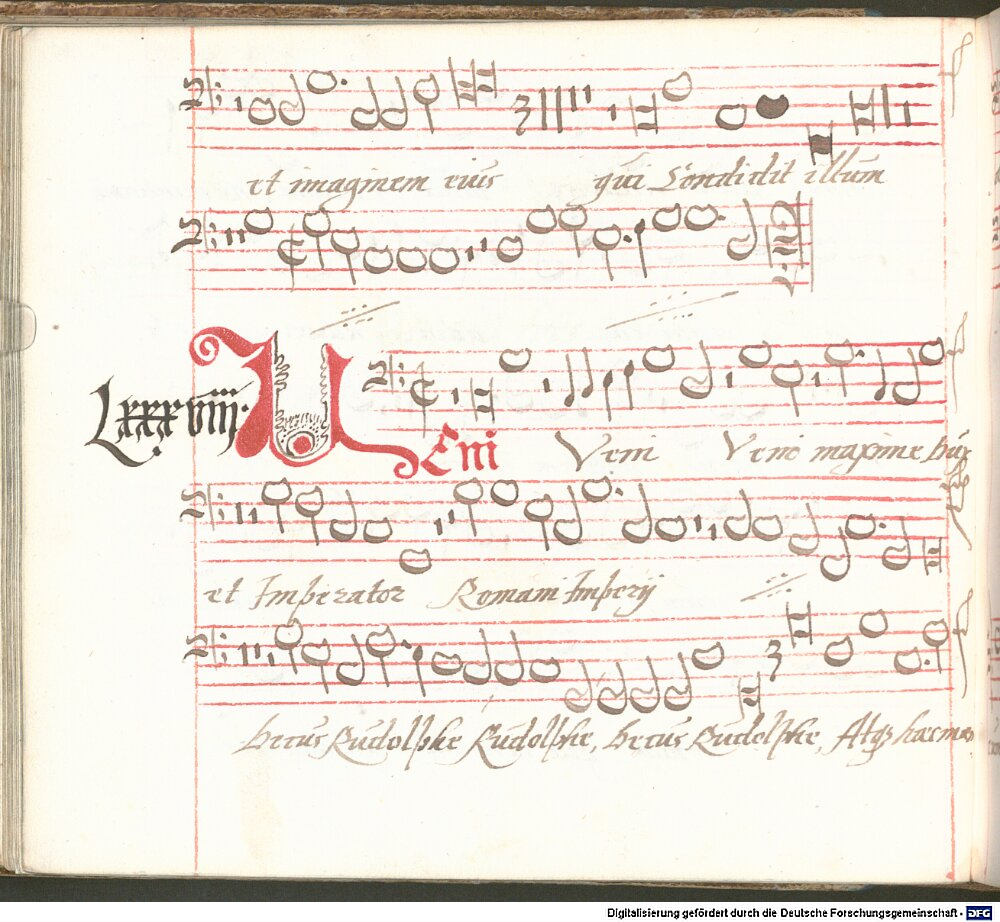 et imaginem eius qui Condidit illum
Lxxxviiij.
VEni Veni Veni maxime
et Imperator Romani Imperij
Rudolphe Rudolphe, Rudolphe, Atq3
Digitalisierung gefördert durch die Deutsche Forschungsgemeinschaft - DFG